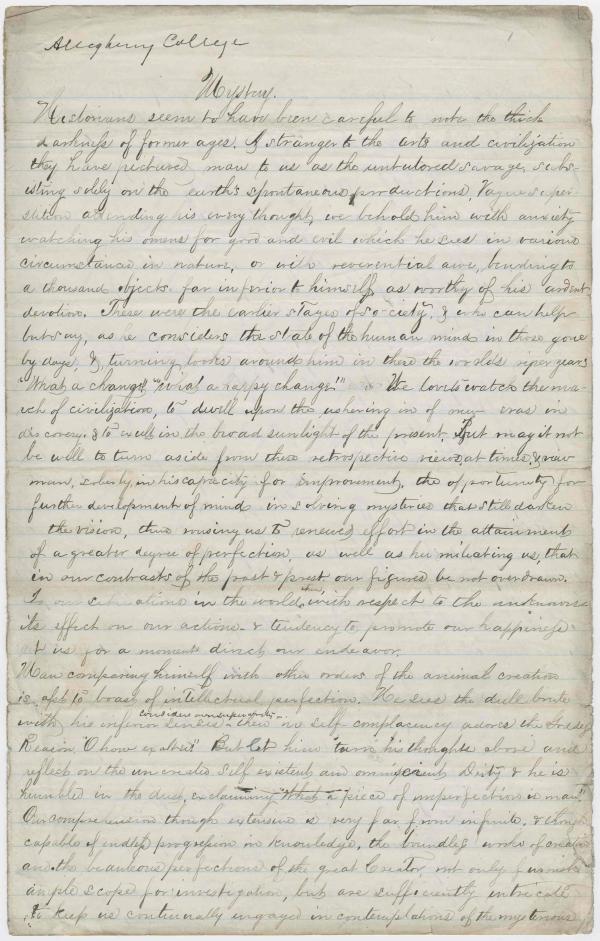 Allegheny College
Mystery.
Historians seem to have been careful to note the thick
darkness of former ages. A stranger to the arts and civilization
they have pictured man to us as the untutored savage, subs-
isting solely on the earth's spontaneous productions. Vague super-
stition attending his every thought, we behold him with anxiety
watching his omens for good and evil which he sees in various
circumstances in nature, or with reverential awe, bending to
a thousand objects far inferior to himself, as worthy of his ardent
devotion. These were the earlier stages of so-ciety, & who can help
but say, as he considers the state of the human mind in those gone
by days, &, turning looks around him in these the worlds riper years
What a change! "What a happy change!" We love to watch the ma-
rch of civilization, to dwell upon the ushering in of new eras in
discovery, & to exult in the broad sunlight of the present. But may it not
be well to turn aside from these retrospective views, at times, & view
man, soberly, in his capacity for improvement, the opportunity for
further development of mind in solving mysteries that still darken
the vision, thus rousing us to renewed effort in the attainment
of a greater degree of perfection, as well as humiliating us, that
in our contrasts of the past & prest our figures be not overdrawn.
To our situations in the world, then, with respect to the unknown
its effect on our actions & tendency to promote our happiness
let us for a moment direct our endeavor.
Man comparing himself with other orders of the animal creation
is apt to boast of intellectual perfection. He sees the dull brute
considers own superiority
with his inferior senses, then in self complacency adores the
Reason, "O how exalted" But let him turn his thoughts above and
reflect on the uncreated self existent and omniscient Deity & he is
humbled in the dust, exclaiming "What a piece of imperfection is man."
Our comprehension though extensive is very far from infinite, & though
capable of endless progression in knowledge, the boundless works of creation
and the beauteous perfections of the great Creator, not only furnish
ample scope for investigation, but are sufficiently intricate
to keep us continually engaged in contemplations of the mysterious